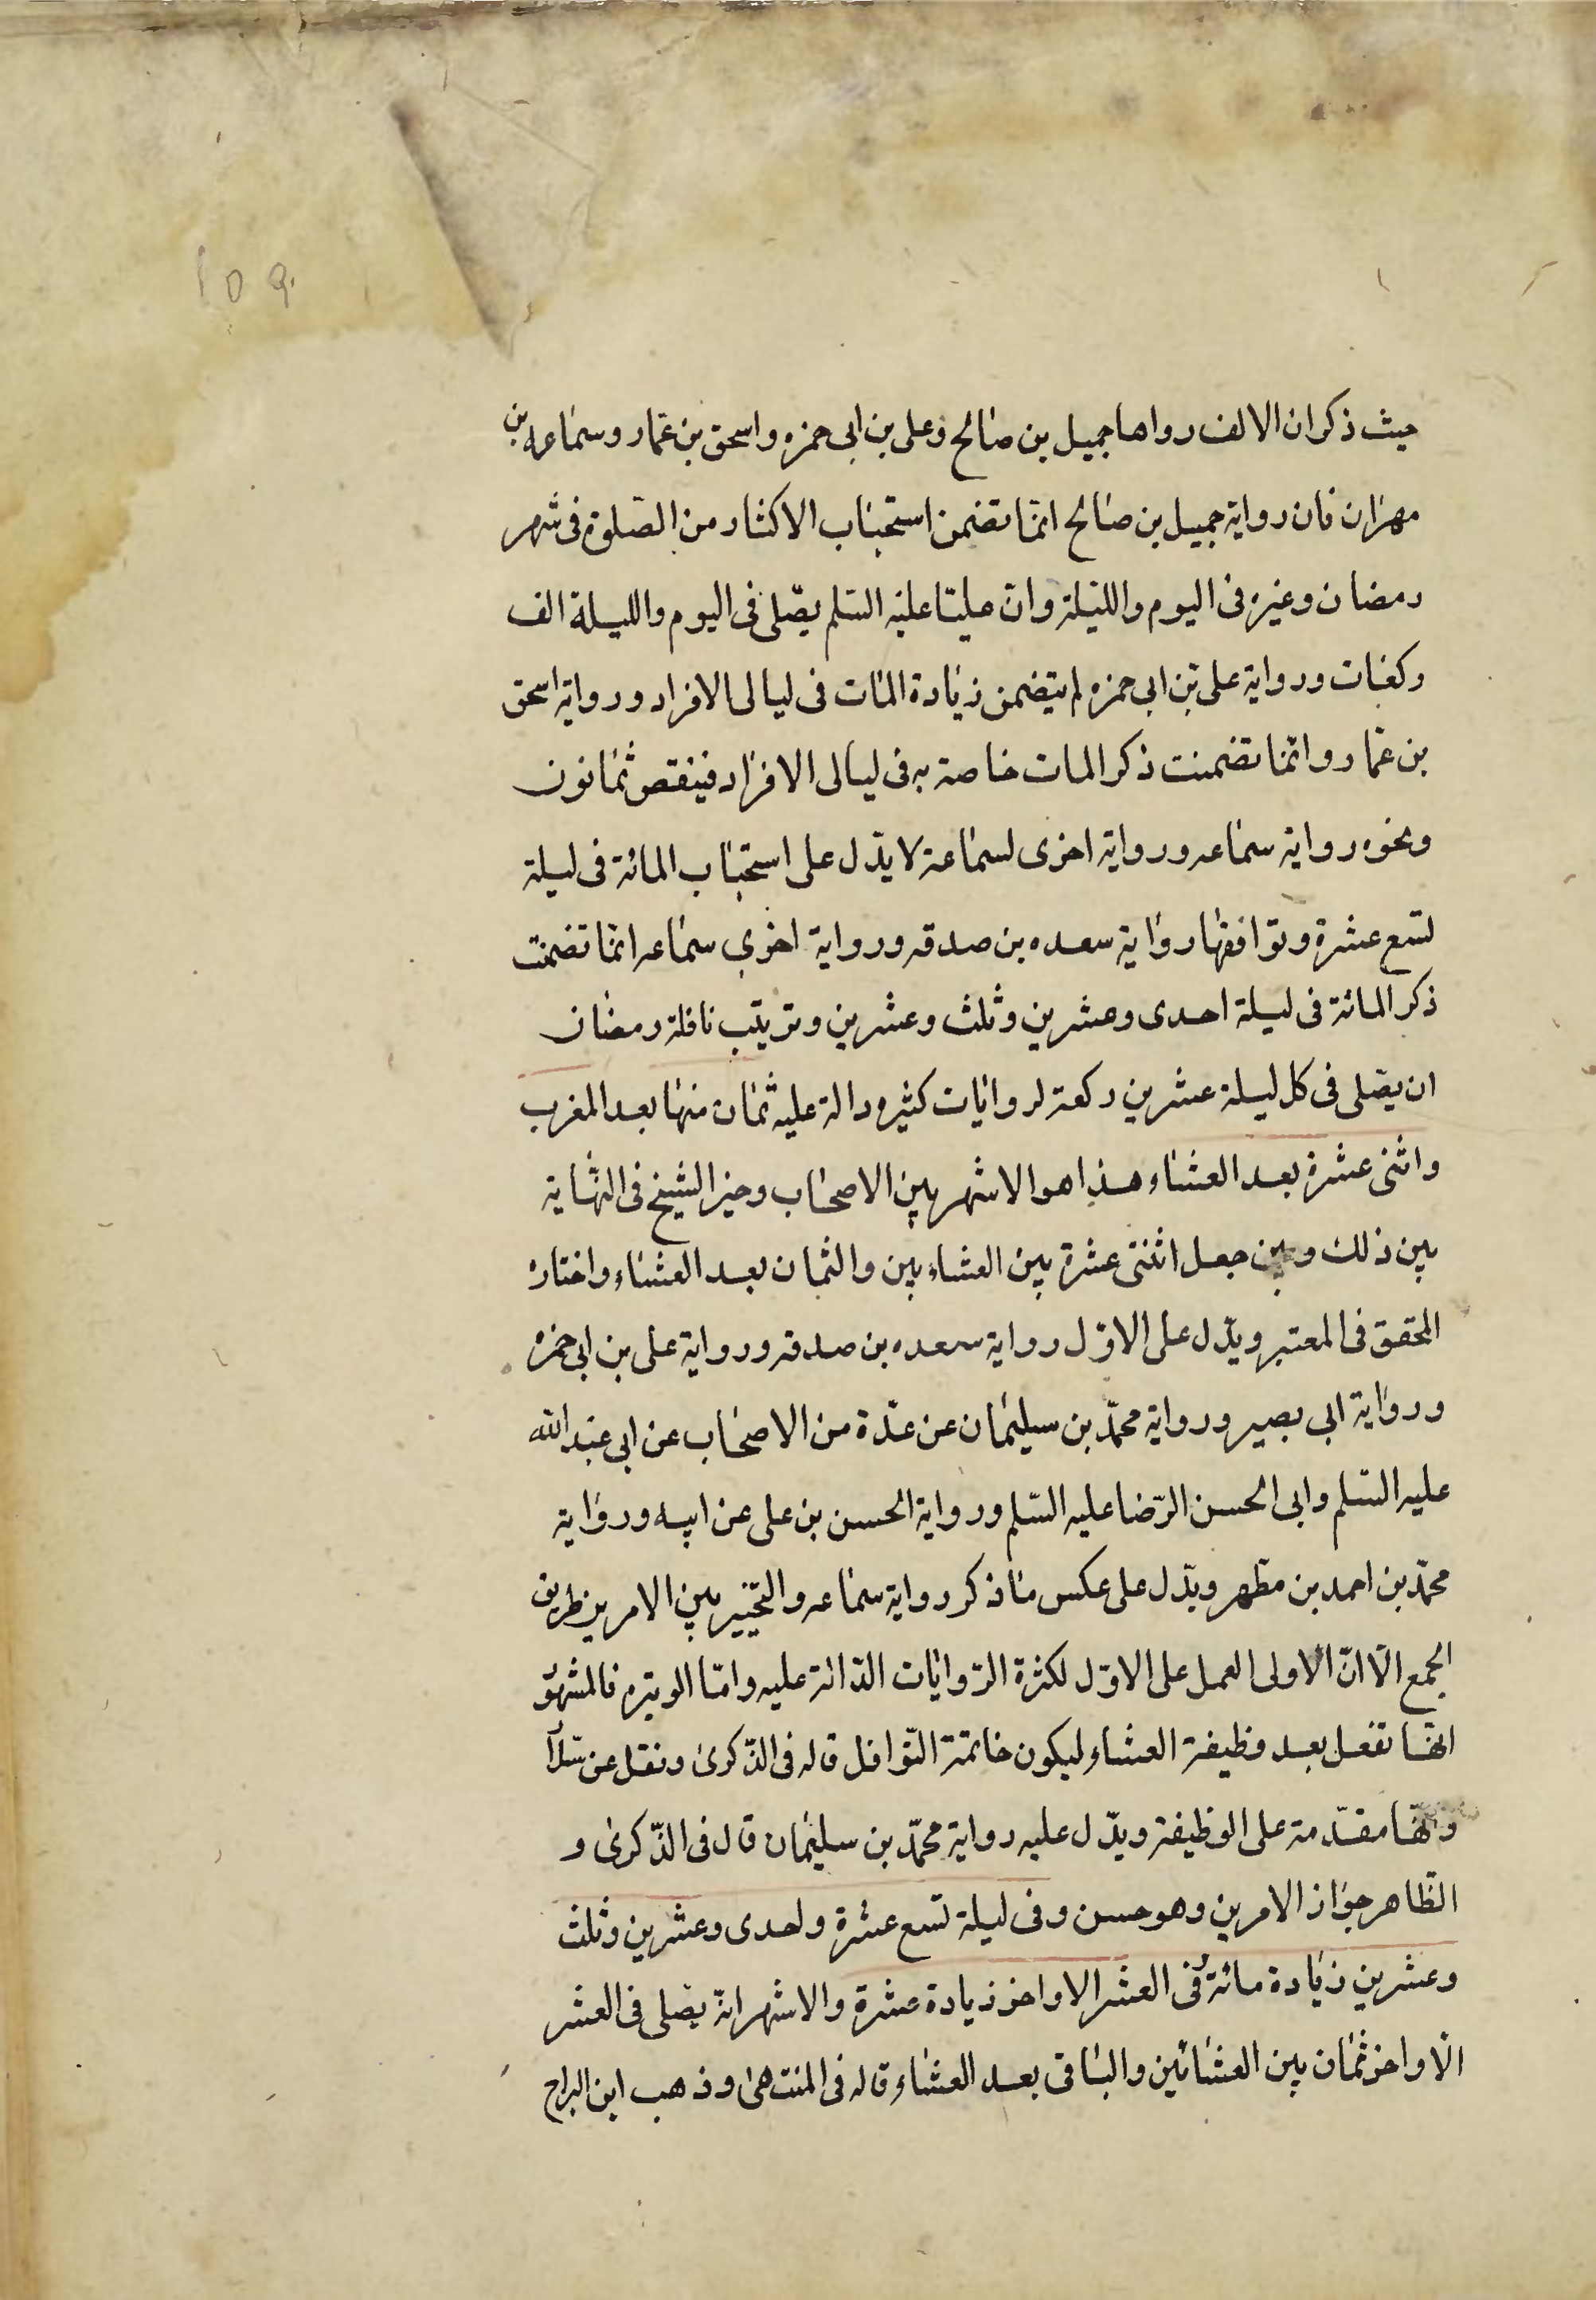 ١٥٩
حيث ذكر ان الالف رواها جميل بن صالح وعلى بن ابى حمزه واسحق بن عمار وسماعه بن
مهران فان رواية جميل بن صالح انما تضمن استحباب الاكثار من الصلوة فى شهر
رمضان وغيره فى اليوم والليلة وان عليّا عليه السلم يصّلى فى اليوم والليلة الف
ركعات ورواية على بن ابى حمزه لم يتضمن زيادة المات فى ليالى الافراد ورواية اسحق
بن عمار وانما تضمنت ذكر المات خاصة به فى ليالى الافراد فينقص ثمانون
ونحوه رواية سماعه ورواية اخرى لسماعة لا يدّل على استحباب المائة فى ليلة
تسع عشرة وتوافقها رواية سعده بن صدقه ورواية اخرى سماعه انما تضمنت
ذكر المائة فى ليلة احدى وعشرين وثلث وعشرين وترتيب نافلة رمضان
ان يصّلى فى كل ليلة عشرين ركعة لروايات كثيره دالة عليه ثمان منها بعد المغرب
واثنى عشرة بعد العشاء هذا هو الاشهر بين الاصحاب وخير الشيخ فى النهاية
بين ذلك وبين جعل اثنتى عشرة بين العشاء بين والثمان بعد العشاء واختاره
المحقق فى المعتبر ويدّل على الاوّل رواية سعده بن صدقه ورواية على بن ابى حمزه
ورواية ابى بصير ورواية محمّد بن سليمان عن عدّة من الاصحاب عن ابى عبد الله
عليه السّلم وابى الحسن الرّضا عليه السّلم ورواية الحسن بن على عن ابيه ورواية
محمّد بن احمد بن مطهر ويدّل على عكس ما ذكر رواية سماعه والتخيير بين الامرين طريق
الجمع الّا انّ الاولى العمل على الاوّل لكثرة الرّوايات الدّالة عليه وامّا الوتيره فالمشهور
انها تفعل بعد وظيفة العشاء ليكون خاتمة النّوافل قاله فى الذّكرى ونقل عن سلّار
وانّها مقدّمة على الوظيفة ويدّل عليه رواية محمّد بن سليمان قال فى الذّكرى و
الظّاهر جواز الامرين وهو حسن وفى ليلة تسع عشرة واحدى وعشرين وثلث
وعشرين زيادة مائة وفى العشر الاواخر زيادة عشرة والاشهر انه يصّلى فى العشر
الاواخر ثمان بين العشائين والباقى بعد العشاء قاله فى المنتهى وذهب ابن البراج